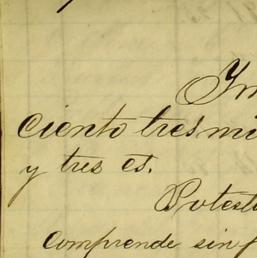 Im
ciento tres mi
y tres cs.
Potest
comprende sin